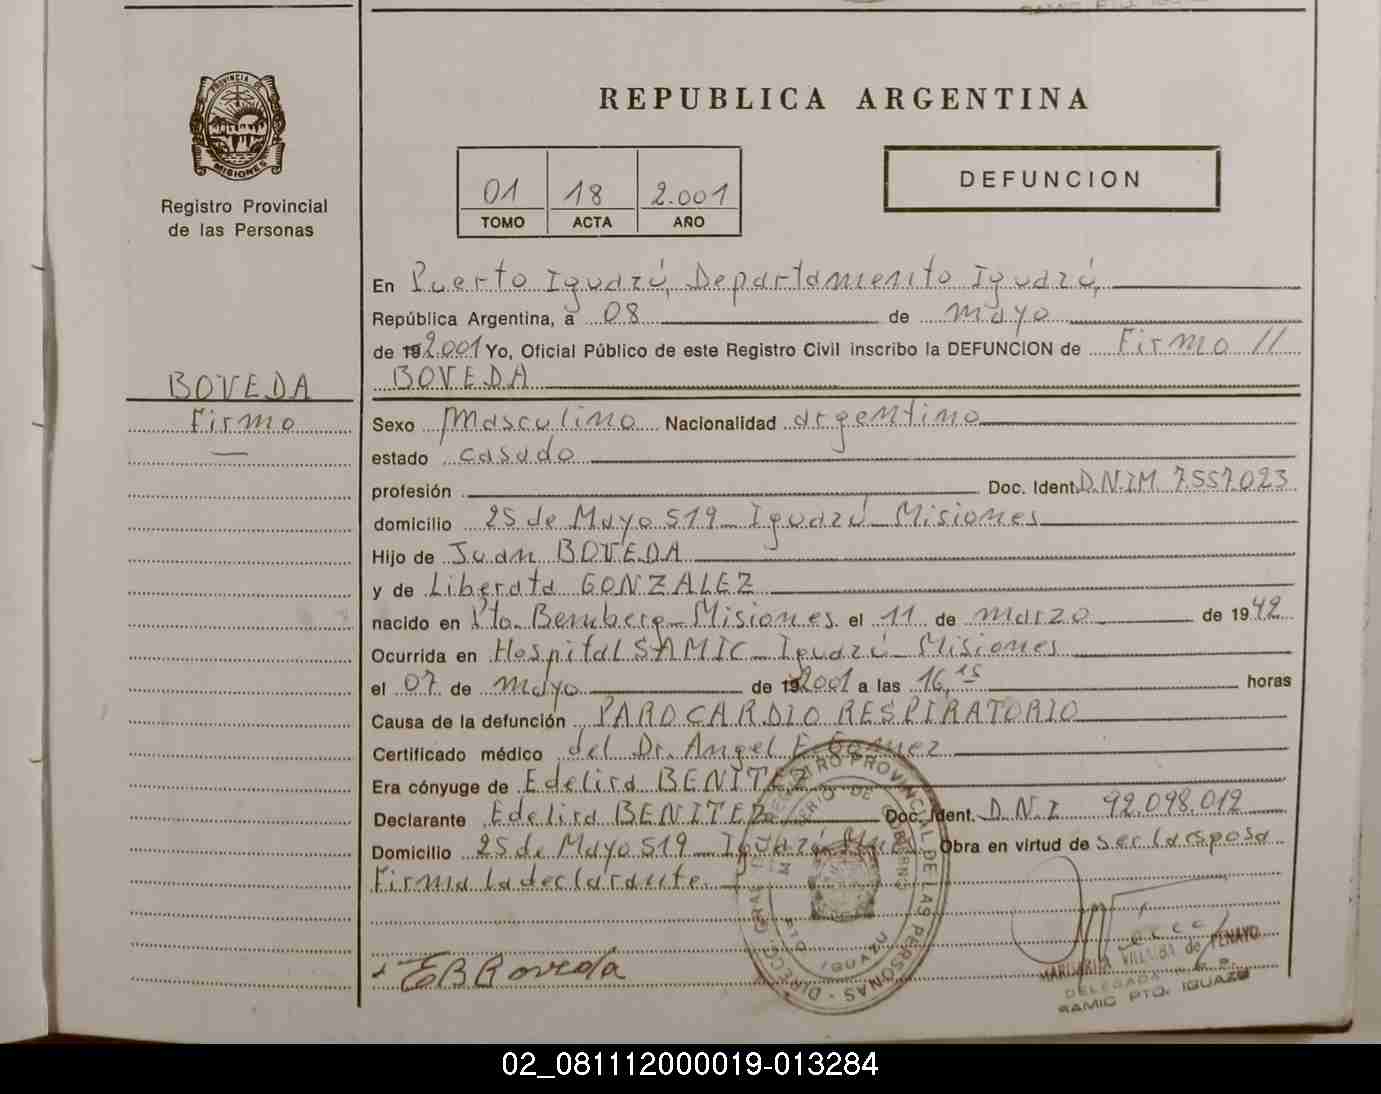 PROVINCIA DE
MISIONES
Registro Provincial
de las Personas
REPUBLICA ARGENTINA
01 18 2.001
TOMO ACTA AÑO
DEFUNCION
En Puerto Iguazú, Departamento Iguazú,
República Argentina, a 08 de mayo
de 19 2.001 Yo, Oficial Público de este Registro Civil inscribo la DEFUNCION de Firmo //
BOVEDA
BOVEDA
Firmo
Sexo masculino Nacionalidad argentino
estado casado
profesión Doc. Ident. D.N.I M 7.557.023
domicilio 25 de Mayo 519 - Iguazú - Misiones
Hijo de Juan BOVEDA
y de Liberata GONZALEZ
nacido en Pto. Bemberg - Misiones el 11 de marzo de 1942
Ocurrida en Hospital SAMIC - Iguazú - Misiones
el 07 de mayo de 19 2001 a las 16,15 horas
Causa de la defunción PARO CARDIO RESPIRATORIO
Certificado médico del Dr. Angel E. Gomez
Era cónyuge de Edelira BENITEZ
Declarante Edelira BENITEZ Doc. Ident. D.N.I 92.098.012
Domicilio 25 de Mayo 519 - Iguazú Obra en virtud de ser la esposa
Firma la declarante.
E B Boveda
REGISTRO PROVINCIAL DE LAS PERSONAS
MINISTERIO DE GOBIERNO
PTO IGUAZU
MARGARITA VILLALBA de PENAYO
DELEGADA
SAMIC PTO. IGUAZU
02_081112000019-013284